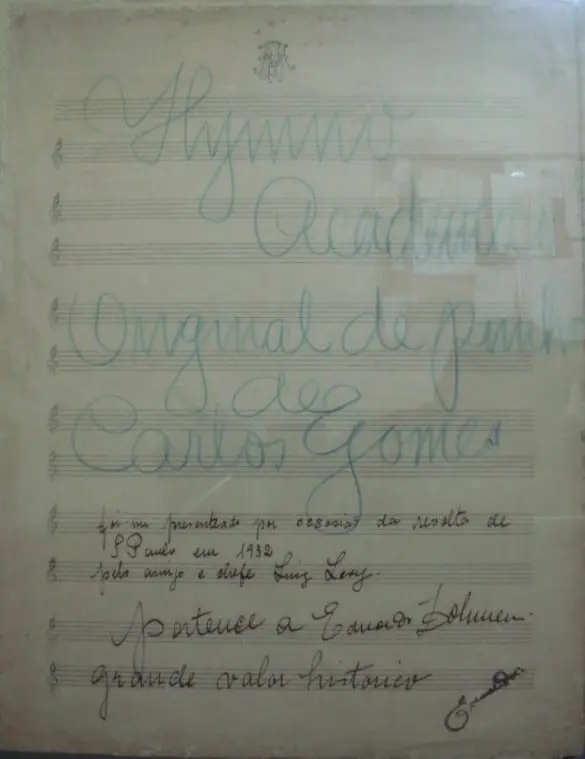 Hymno
Academico
Original de punho
de
Carlos Gomes
foi me presenteado por occasião da revolta de
S. Paulo em 1932
pelo amigo e chefe Luiz Levy.
pertence a Eduardo
grande valor historico